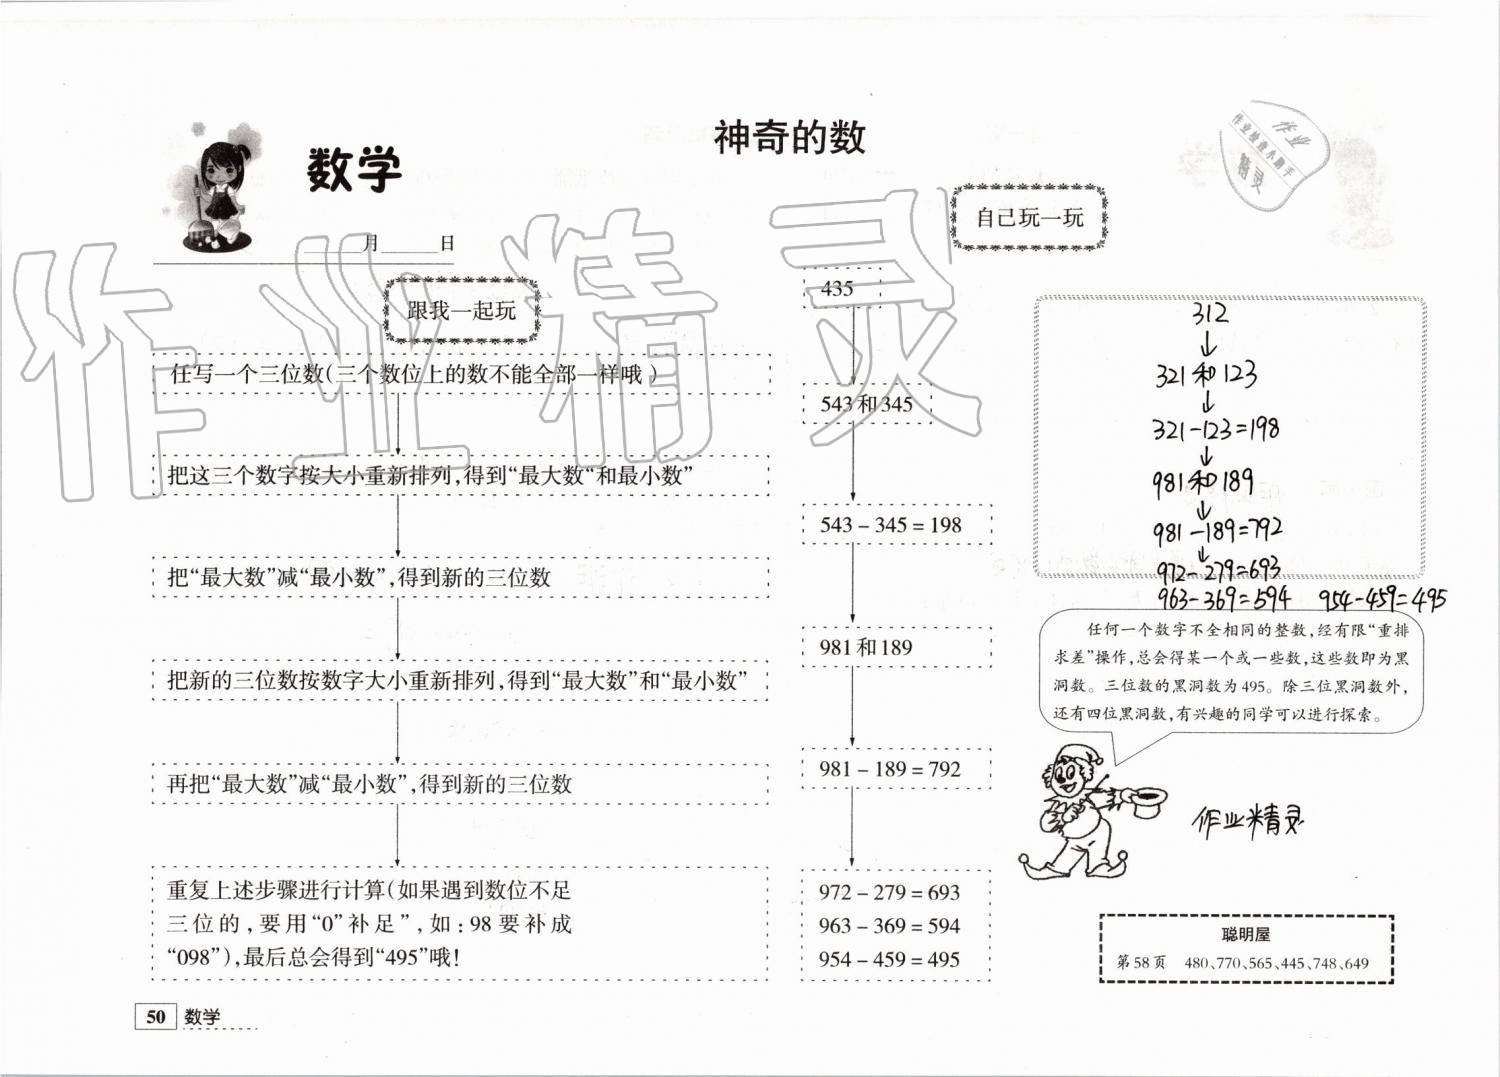 神奇的数
数学
月 日
作业精灵
作业
作业检查小助手
精灵
跟我一起玩
任写一个三位数(三个数位上的数不能全部一样哦)
把这三个数字按大小重新排列,得到“最大数“和最小数”
把“最大数”减“最小数”,得到新的三位数
把新的三位数按数字大小重新排列,得到“最大数”和“最小数”
再把“最大数”减“最小数”,得到新的三位数
重复上述步骤进行计算(如果遇到数位不足
三位的,要用“0”补足”,如:98要补成
“098”),最后总会得到“495”哦!
自己玩一玩
435
543和345
543-345=198
981和189
981-189=792
972-279=693
963-369=594
954-459=495
312
321和123
321-123=198
981和189
981-189=792
972-279=693
963-369=594 954-459=495
任何一个数字不全相同的整数,经有限“重排
求差”操作,总会得某一个或一些数,这些数即为黑
洞数。三位数的黑洞数为495。除三位黑洞数外,
还有四位黑洞数,有兴趣的同学可以进行探索。
作业精灵
聪明屋
第58页 480、770、565、445、748、649
50 数学